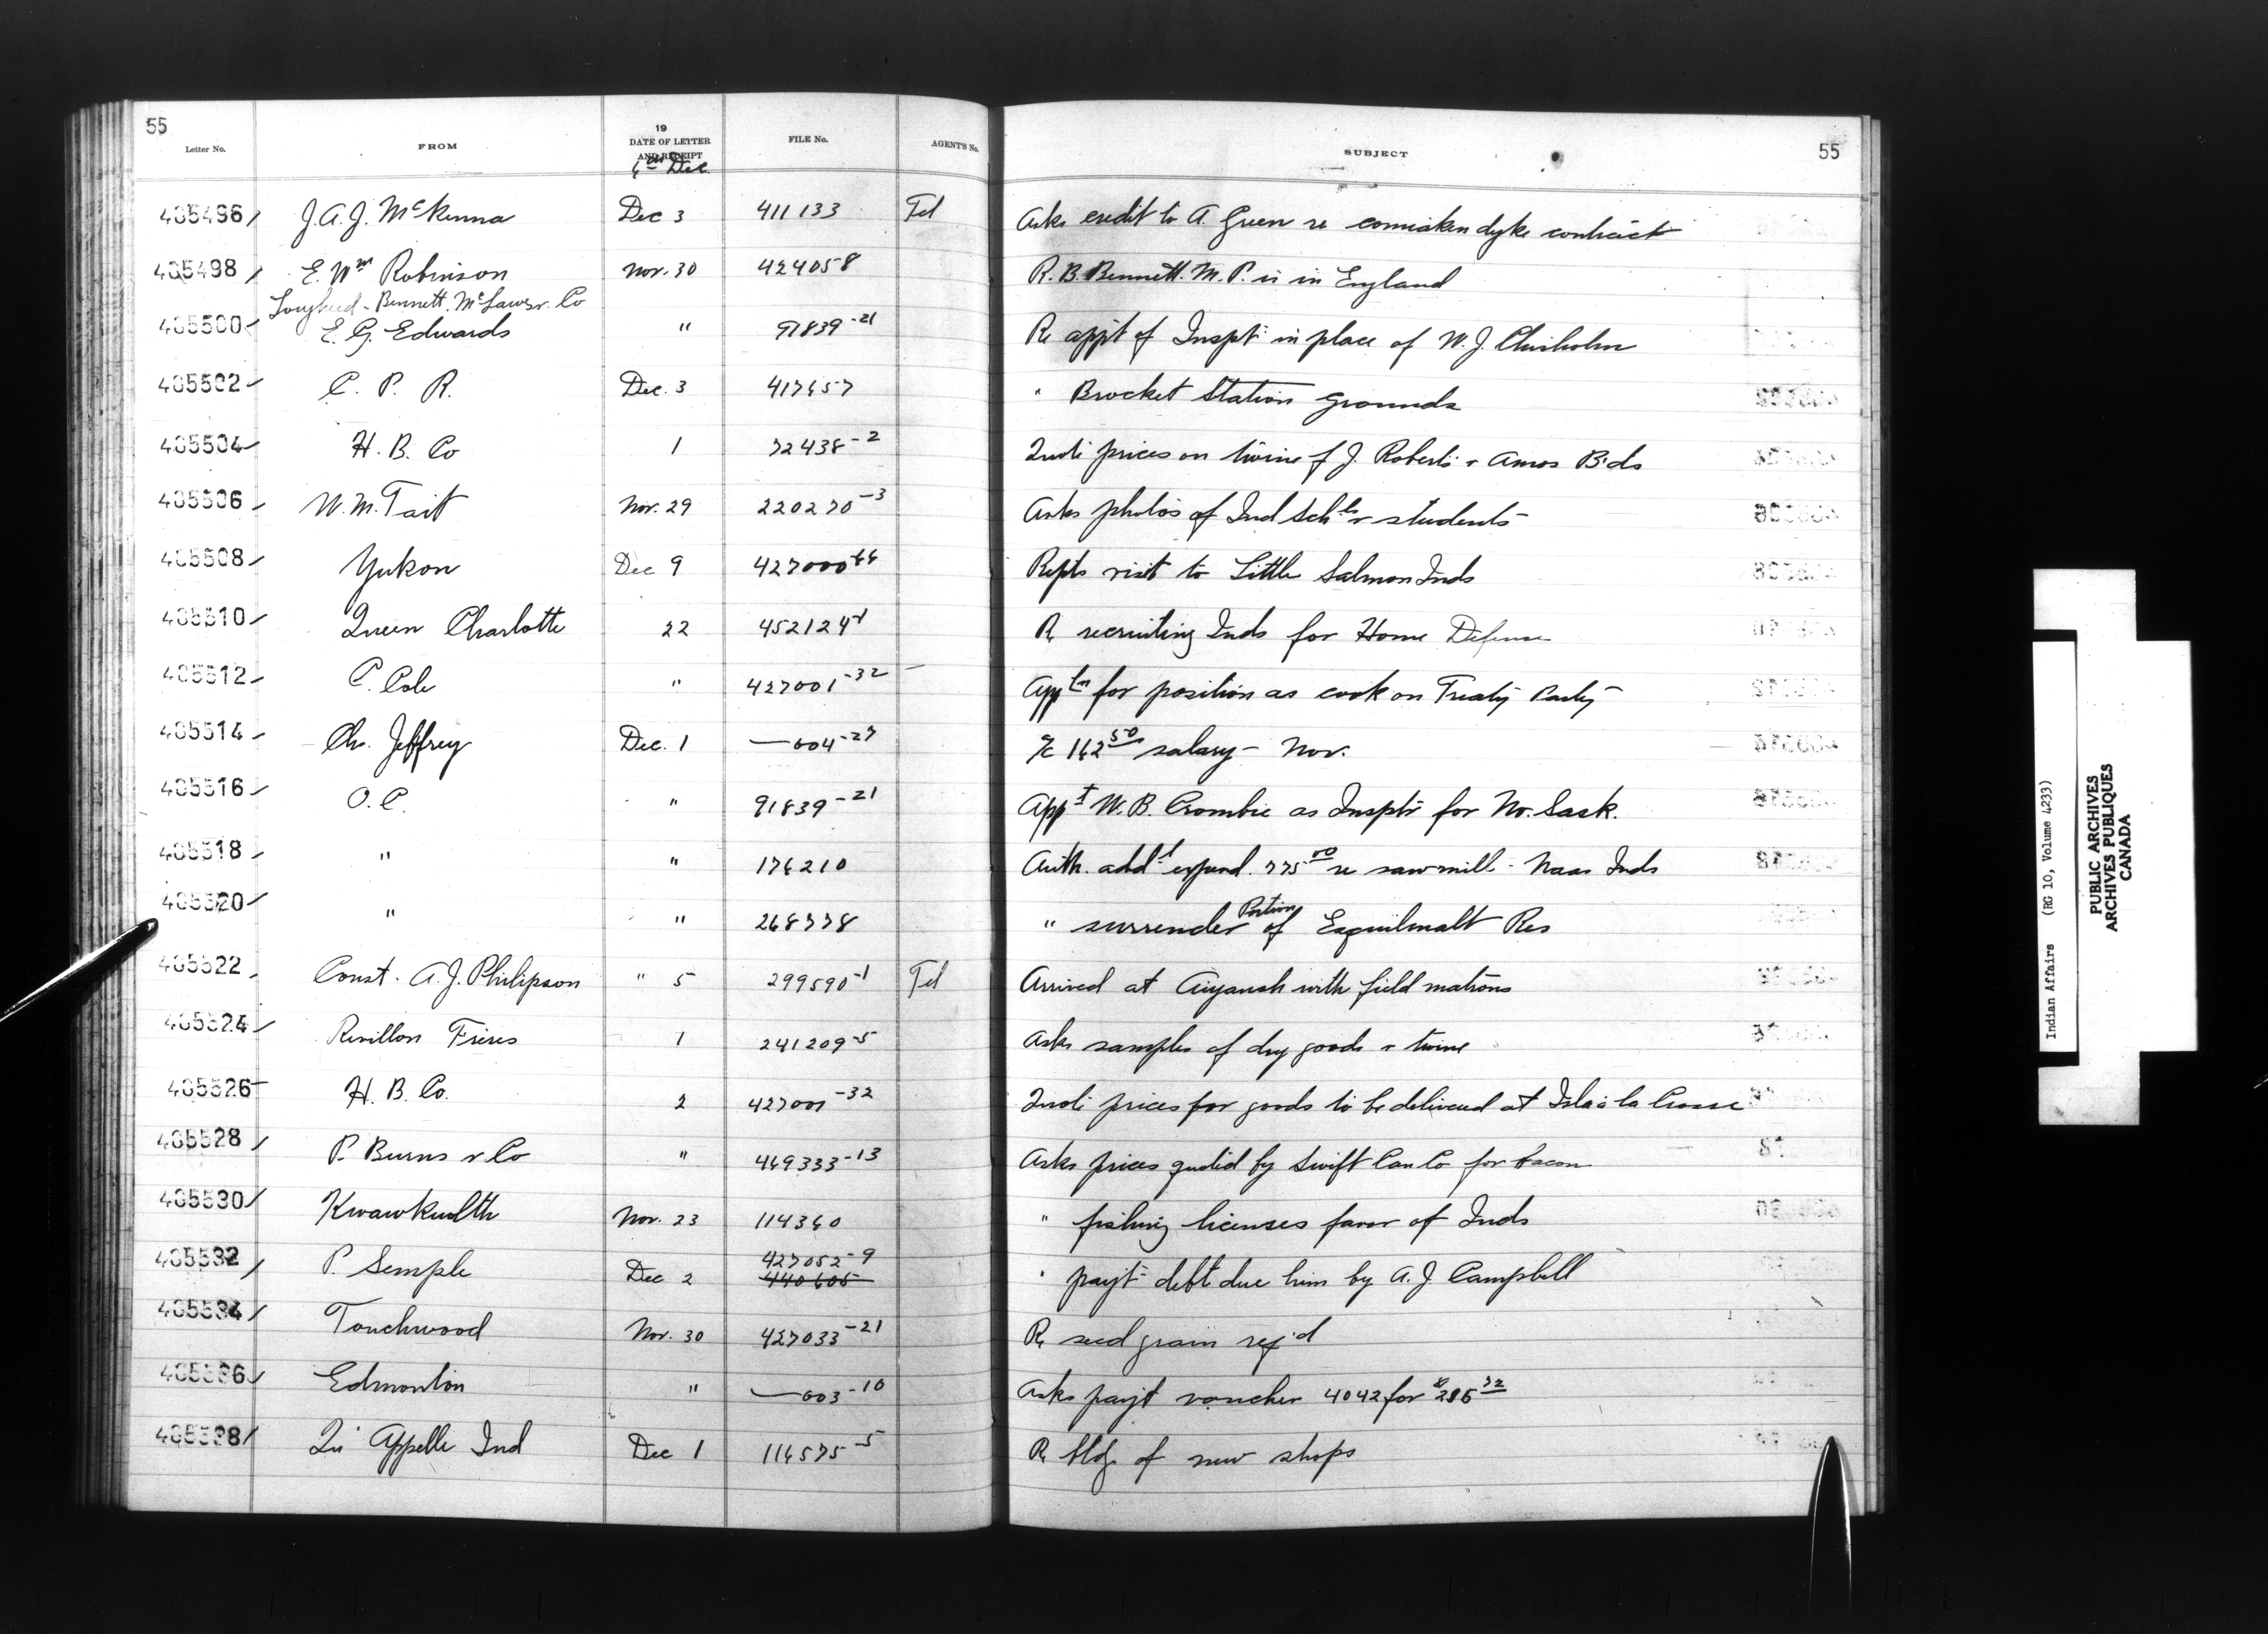 55
Letter No. FROM 19 DATE OF LETTER AND RECEIPT FILE No. AGENT'S No. SUBJECT 55
Dec.
465496 J.A.J. McKenna Dec 3 411133 Tel Asks credit to A. Green re comiaken dyke contract
465498 E. Wm Robinson Nov. 30 424058 R.B. Bennett. M.P. is in England
Lougheed - Bennett, McLaws & Co
465500 E. G. Edwards " 91839-21 Re appt of Inspt in place of W. J. Chisholm
465502 C. P. R. Dec. 3 417657 " Brocket Station grounds
465504 H. B. Co 1 72438-2 Quoti prices on twine f J. Roberts & Amos B'ds
465506 W. M. Tait Nov. 29 220270-3 Asks photos of Ind Schls & students
465508 Yukon Dec 9 427000-66 Repts visit to Little Salmon Inds
465510 Queen Charlotte 22 452124-1 Re recruiting Inds for Home Defense
465512 C. Cole " 427001-32 Appln for position as cook on Treaty Party
465514 Ch. Jeffrey Dec. 1 —004-27 a/c 162.50 salary - Nov.
465516 O. C. " 91839-21 Appt W. B. Crombie as Insptr for No. Sask.
465518 " " 176210 Auth. addl expend. 775.00 re sawmill - Naas Inds
465520 " " 268778 " surrender Portion of Esquilmalt Res
465522 Const. A. J. Philipson " 5 299590-1 Tel Arrived at Aiyansh with field matrons
465524 Revillon Freres 1 241209-5 Asks samples of dry goods & twine
465526 H. B. Co. 2 427001-32 Quoti prices for goods to be delivered at Isla à la Crosse
465528 P. Burns & Co " 469333-13 Asks prices quoted by Swift Can Co for bacon
465530 Kwawkewlth Nov. 23 114360 " fishing licenses favor of Inds
465532 P. Semple Dec 2 427052-9 440605 " payt debt due him by A. J. Campbell
465534 Touchwood Nov. 30 427033-21 Re seed grain req'd
465536 Edmonton " —003-10 Asks payt voucher 4042 for
465538 Qu' Appelle Ind Dec 1 116575-5 Re bldg. of new shops
Indian Affairs (RG 10, Volume 4233)
PUBLIC ARCHIVES
ARCHIVES PUBLIQUES
CANADA